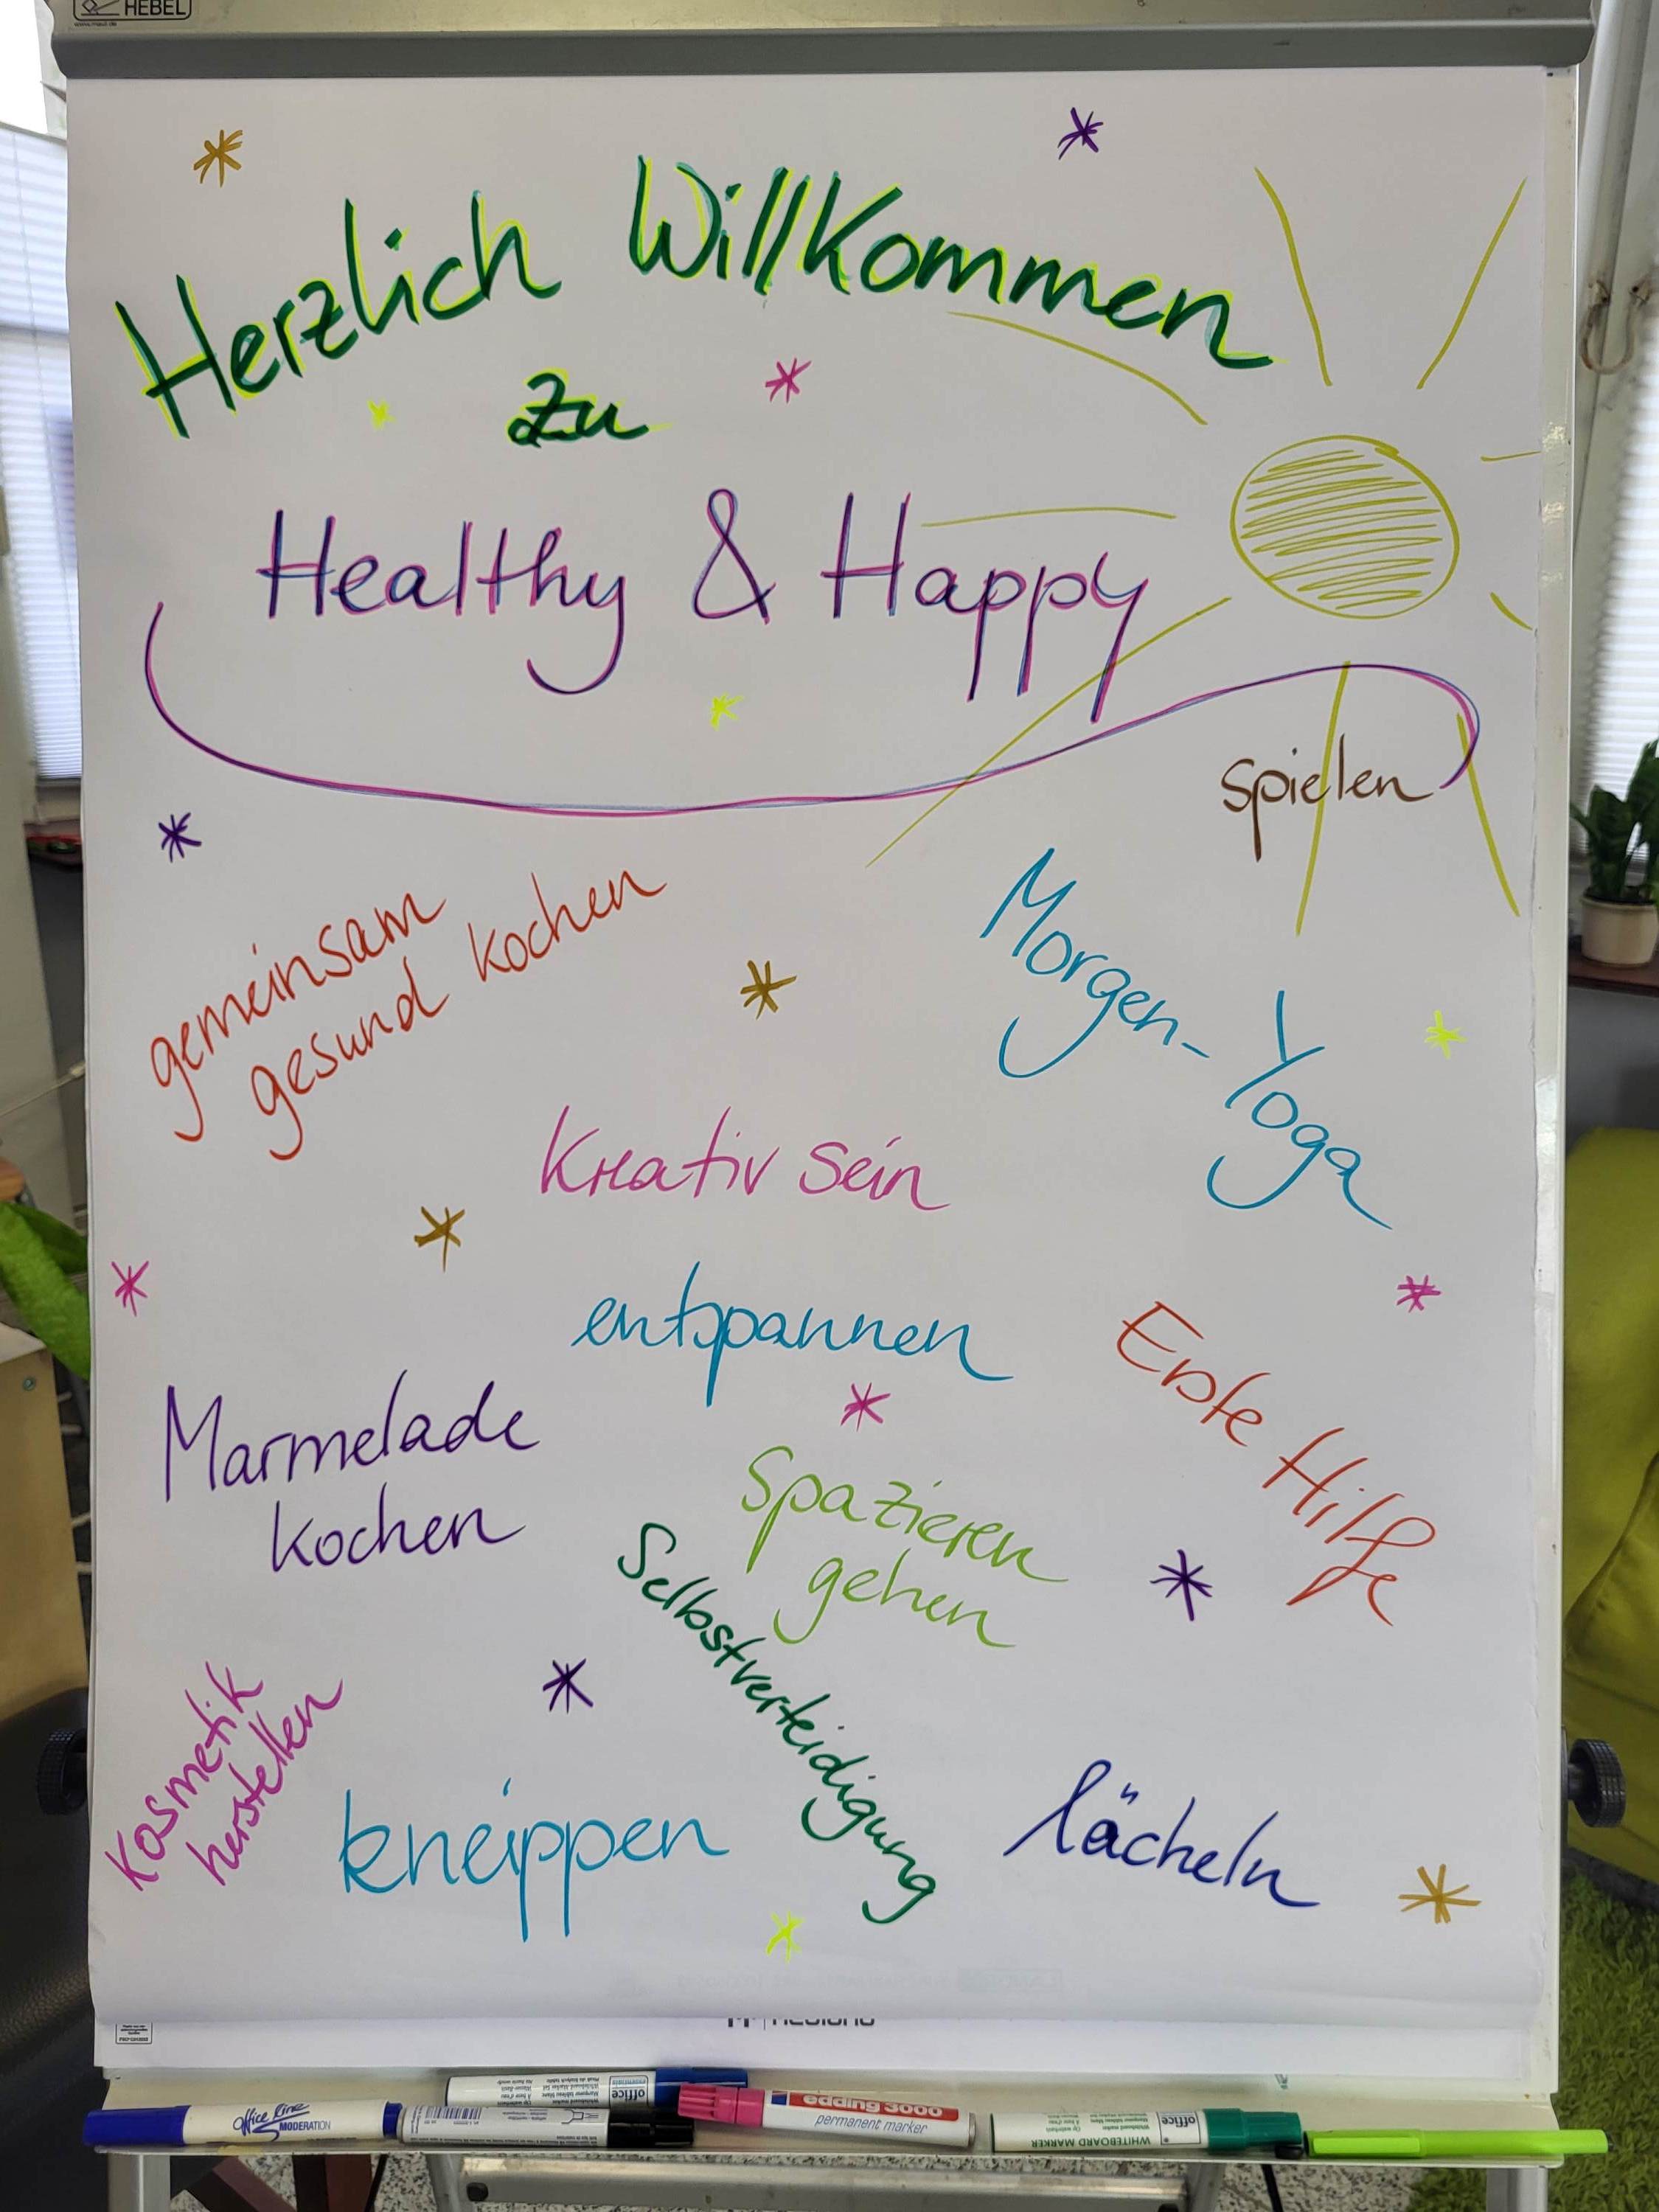 HEBEL
Herzlich Willkommen
zu
Healthy & Happy
spielen
gemeinsam
gesund kochen
Morgen-
Yoga
Kreativ sein
entspannen
Erste Hilfe
Marmelade
kochen
spazieren
gehen
Selbstverteidigung
Kosmetik
herstellen
kneippen
lächeln
Office Line
MODERATION
office
edding 3000
permanent marker
office
WHITEBOARD MARKER